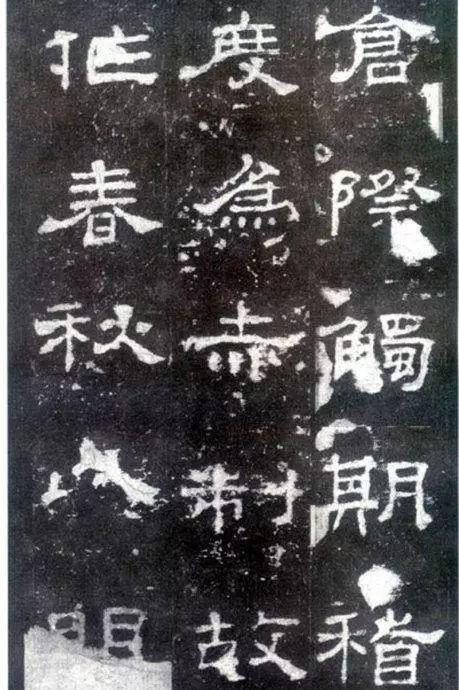 倉際觸期稽
度爲赤制故
作春秋以明